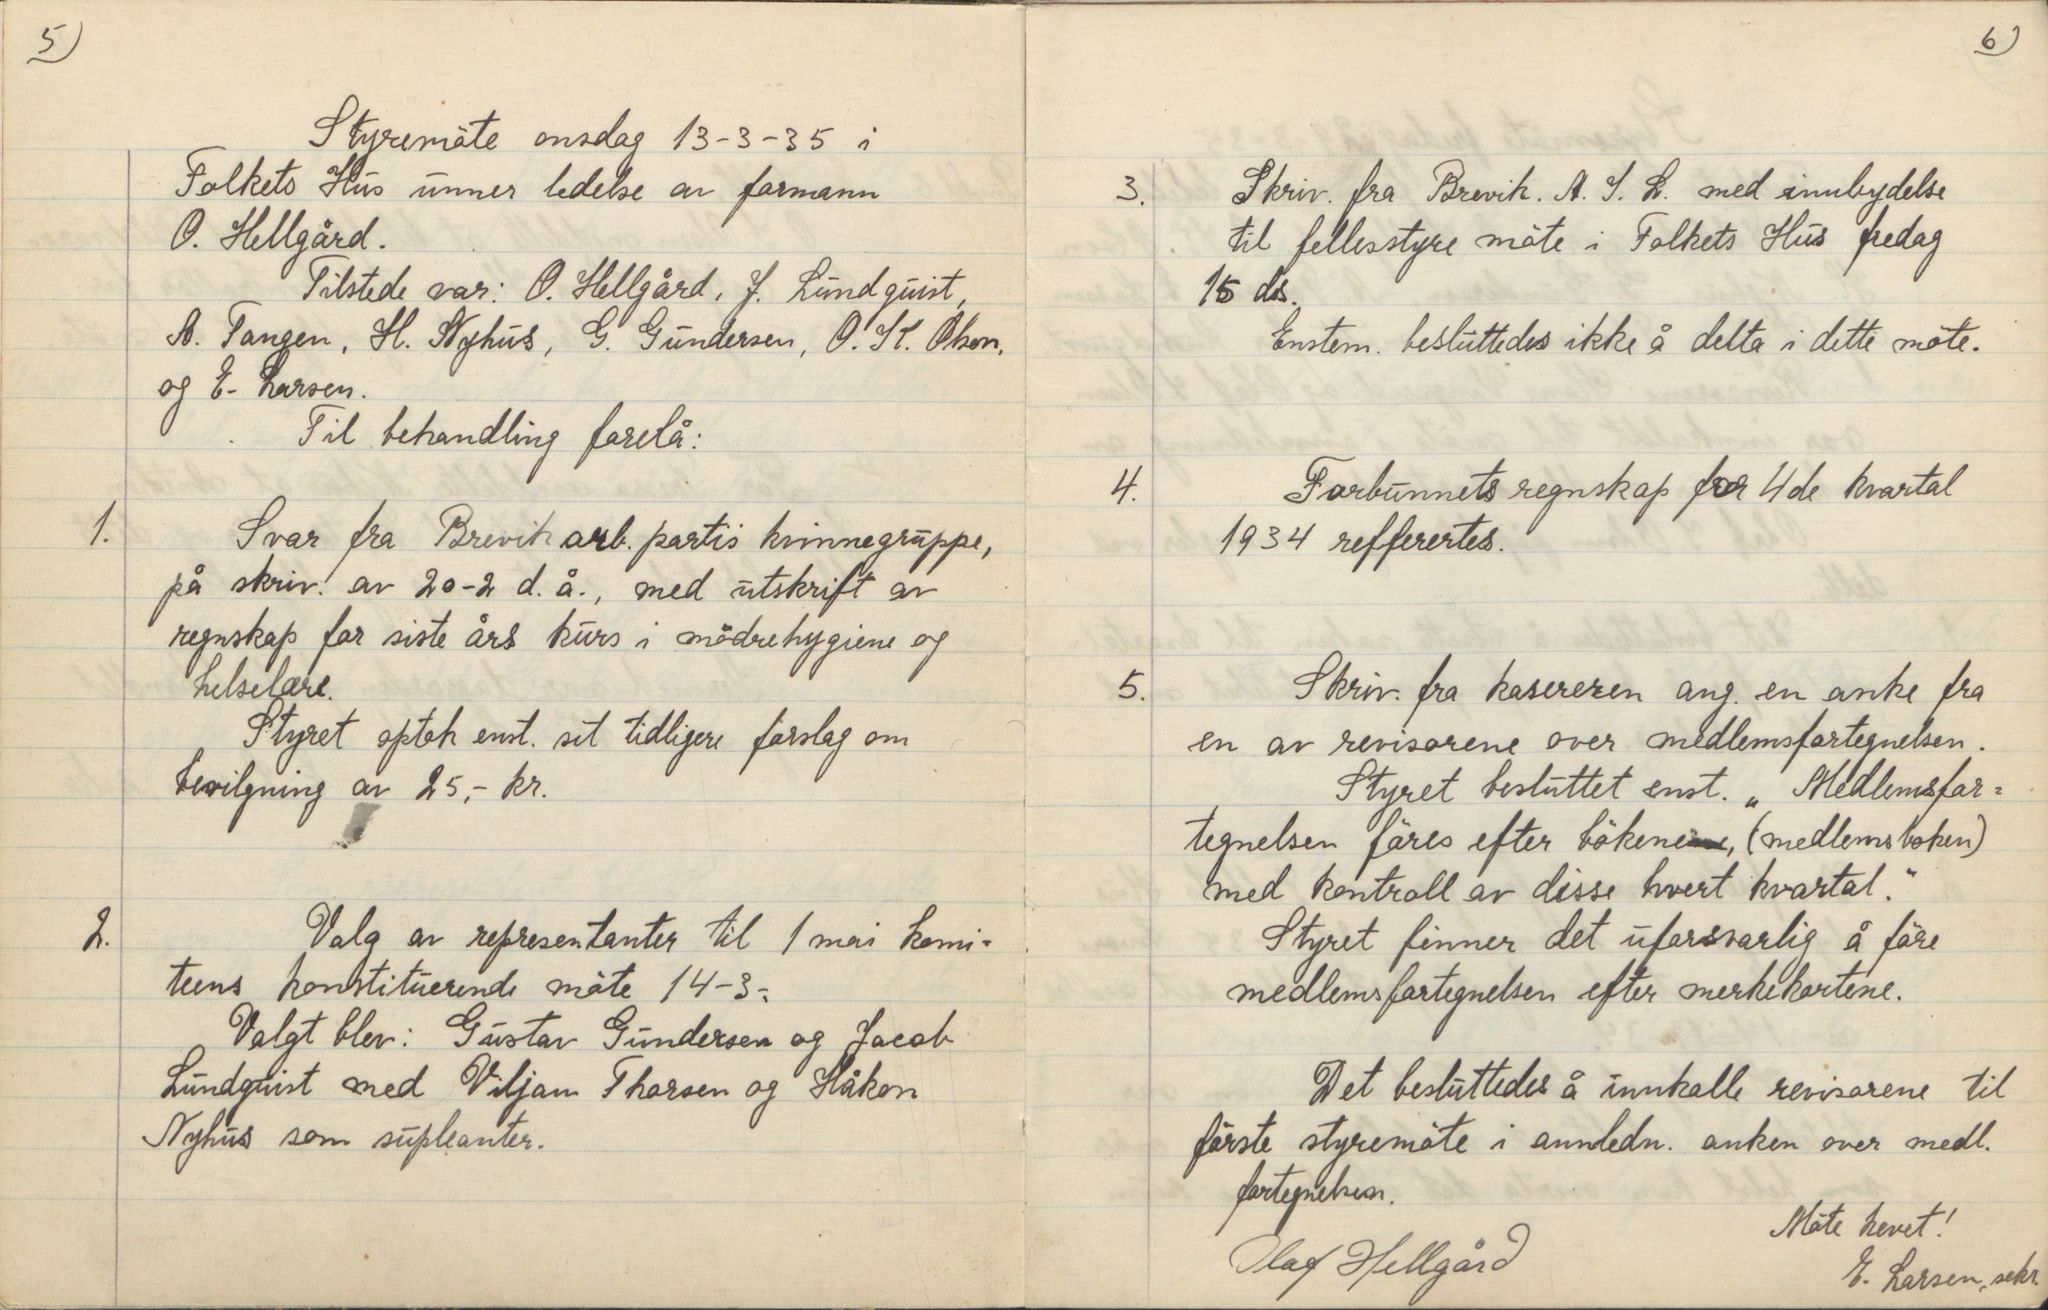 5)
Styremöte onsdag 13-3-35 i
Folkets Hus unner ledelse av formann
O. Hellgård.
Tilstede var: O. Hellgård, J. Lundquist,
A. Tangen, H. Nyhus, G. Gundersen, O. K. Olsen,
og E. Larsen.
Til behandling forelå:
1. Svar fra Brevik arb. partis kvinnegruppe,
på skriv. av 20-2 d. å., med utskrift av
regnskap for siste års kurs i mödrehygiene og
helselære.
Styret optok enst. sit tidligere forslag om
bevilgning av 25,- kr.
2. Valg av representanter til 1 mai komi-
teens konstituerende möte 14-3-.
Valgt blev: Gustav Gundersen og Jacob
Lundquist med Viljam Thorsen og Håkon
Nyhus som supleanter.
6)
3. Skriv. fra Brevik. A. I. L. med innbydelse
til fellesstyre möte i Folkets Hus fredag
15 ds.
Enstem. besluttedes ikke å delta i dette möte.
4. Forbunnets regnskap for 4de kvartal
1934 refferertes.
5. Skriv. fra kasereren ang. en anke fra
en av revisorene over medlemsfortegnelsen.
Styret besluttet enst. „Medlemsfor=
tegnelsen föres efter bökene, (medlemsboken)
med kontroll av disse hvert kvartal."
Styret finner det uforsvarlig å före
medlemsfortegnelsen efter merkekortene.
Det besluttedes å innkalle revisorene til
förste styremöte i annledn. anken over medl.
fortegnelsen.
Möte hevet!
Olaf Hellgård
E. Larsen, sekr.